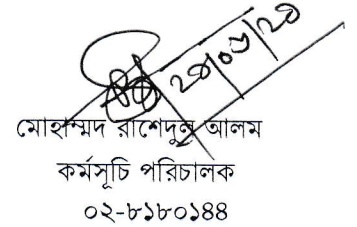 মোহাম্মদ রাশেদুল আলম
কর্মসূচি পরিচালক
০২-৮১৮০১৪৪